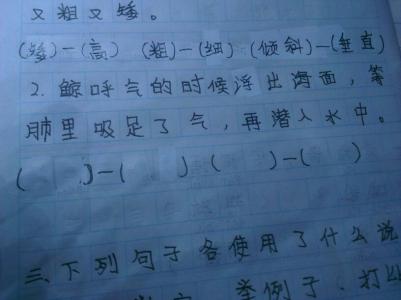 又粗又矮。
(矮)-(高) (粗)-(细) (倾斜)-(垂直)
2. 鲸呼气的时候浮出海面,等
肺里吸足了气,再潜入水中。
( )-( ) ( )-( )
三、下列句子各使用了什么说
举例子、打比